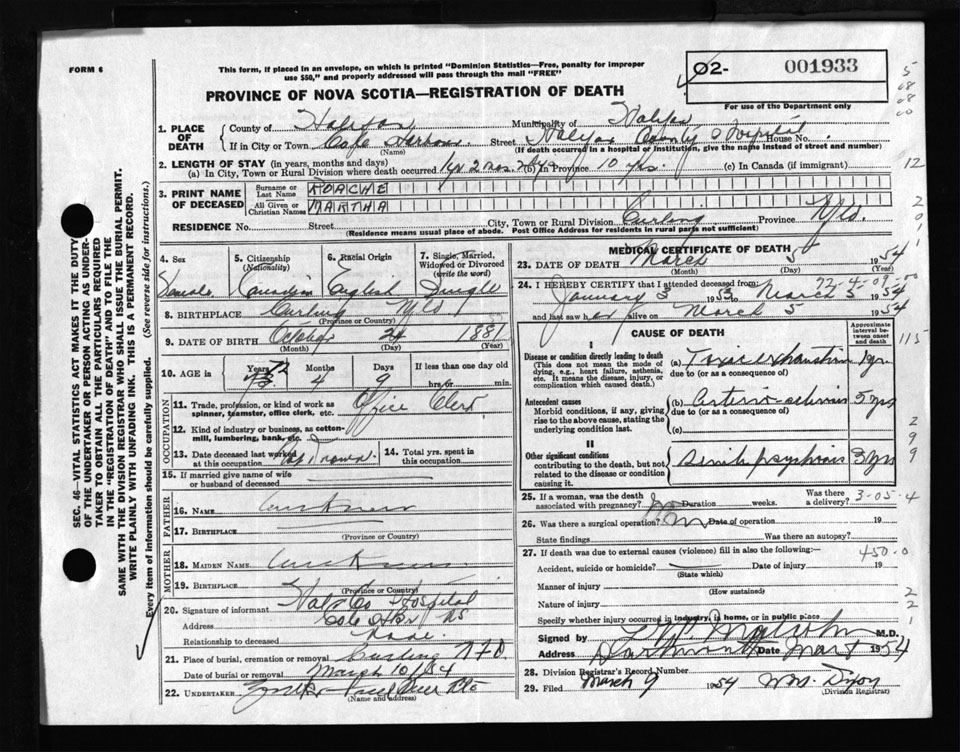 FORM 6
This form, if placed in an envelope, on which is printed "Dominion Statistics—Free, penalty for improper
use $50," and properly addressed will pass through the mail "FREE"
02- 001933
For use of the Department only
PROVINCE OF NOVA SCOTIA—REGISTRATION OF DEATH
1. PLACE OF DEATH
County of Halifax Municipality of Halifax
If in City or Town Cole Harbour Street Halifax County Hospital House No.
(Name) (If death occurred in a hospital or institution, give the name instead of street and number)
2. LENGTH OF STAY (in years, months and days)
(a) In City, Town or Rural Division where death occurred 1yr 2 mos. (b) In Province 10 yrs. (c) In Canada (if immigrant)
3. PRINT NAME OF DECEASED
Surname or Last Name ROACHE
All Given or Christian Names MARTHA
RESIDENCE No. Street City, Town or Rural Division Curling Province Nfld.
(Residence means usual place of abode. Post Office Address for residents in rural parts not sufficient)
4. Sex
Female
5. Citizenship
(Nationality)
Canadian
6. Racial Origin
English
7. Single, Married,
Widowed or Divorced
(write the word)
Single
8. BIRTHPLACE Curling Nfld
(Province or Country)
9. DATE OF BIRTH October 24 1881
(Month) (Day) (Year)
10. AGE in Years Months Days If less than one day old
72 4 9 hrs. or min.
OCCUPATION
11. Trade, profession, or kind of work as
spinner, teamster, office clerk, etc. Office Clerk
12. Kind of industry or business, as cotton-
mill, lumbering, bank, etc.
13. Date deceased last worked
at this occupation
14. Total yrs. spent in
this occupation
15. If married give name of wife
or husband of deceased
FATHER
16. NAME Unknown
17. BIRTHPLACE
(Province or Country)
MOTHER
18. MAIDEN NAME Unknown
19. BIRTHPLACE
(Province or Country)
20. Signature of informant Halifax Co Hospital
Address Cole Hbr NS
Relationship to deceased None
21. Place of burial, cremation or removal Curling Nfld.
Date of burial or removal March 10/54
22. UNDERTAKER
(Name and address)
MEDICAL CERTIFICATE OF DEATH
23. DATE OF DEATH March 5 1954
(Month) (Day) (Year)
24. I HEREBY CERTIFY that I attended deceased from:
January 3 1953 to March 5 1954
and last saw her alive on March 5 1954
CAUSE OF DEATH
Approximate
interval be-
tween onset
and death
I
Disease or condition directly leading to death
(This does not mean the mode of
dying, e.g., heart failure, asthenia,
etc. It means the disease, injury, or
complication which caused death.)
(a) Toxic Exhaustion 1 yr
due to (or as a consequence of)
Antecedent causes
Morbid conditions, if any, giving
rise to the above cause, stating the
underlying condition last.
(b) Arterio-sclerosis 5 yrs
due to (or as a consequence of)
(c)
II
Other significant conditions
contributing to the death, but not
related to the disease or condition
causing it.
Senile psychosis 3 yrs
25. If a woman, was the death
associated with pregnancy? No Duration weeks. Was there
a delivery?
3-05-4
26. Was there a surgical operation? No Date of operation 19
State findings Was there an autopsy?
27. If death was due to external causes (violence) fill in also the following:—
450-0
Accident, suicide or homicide? Date of injury 19
(State which)
Manner of injury
(How sustained)
Nature of injury
Specify whether injury occurred in industry, in home, or in public place
Signed by M.D.
Address Dartmouth Date Mar 8 1954
28. Division Registrar's Record Number
29. Filed March 9 1954 Wm. Dixon
(Division Registrar)
SEC. 46—VITAL STATISTICS ACT MAKES IT THE DUTY
OF THE UNDERTAKER OR PERSON ACTING AS UNDER-
TAKER TO OBTAIN ALL THE PARTICULARS REQUIRED
IN THE "REGISTRATION OF DEATH" AND TO FILE THE
SAME WITH THE DIVISION REGISTRAR WHO SHALL ISSUE THE BURIAL PERMIT.
WRITE PLAINLY WITH UNFADING INK. THIS IS A PERMANENT RECORD.
Every item of information should be carefully supplied. (See reverse side for instructions.)